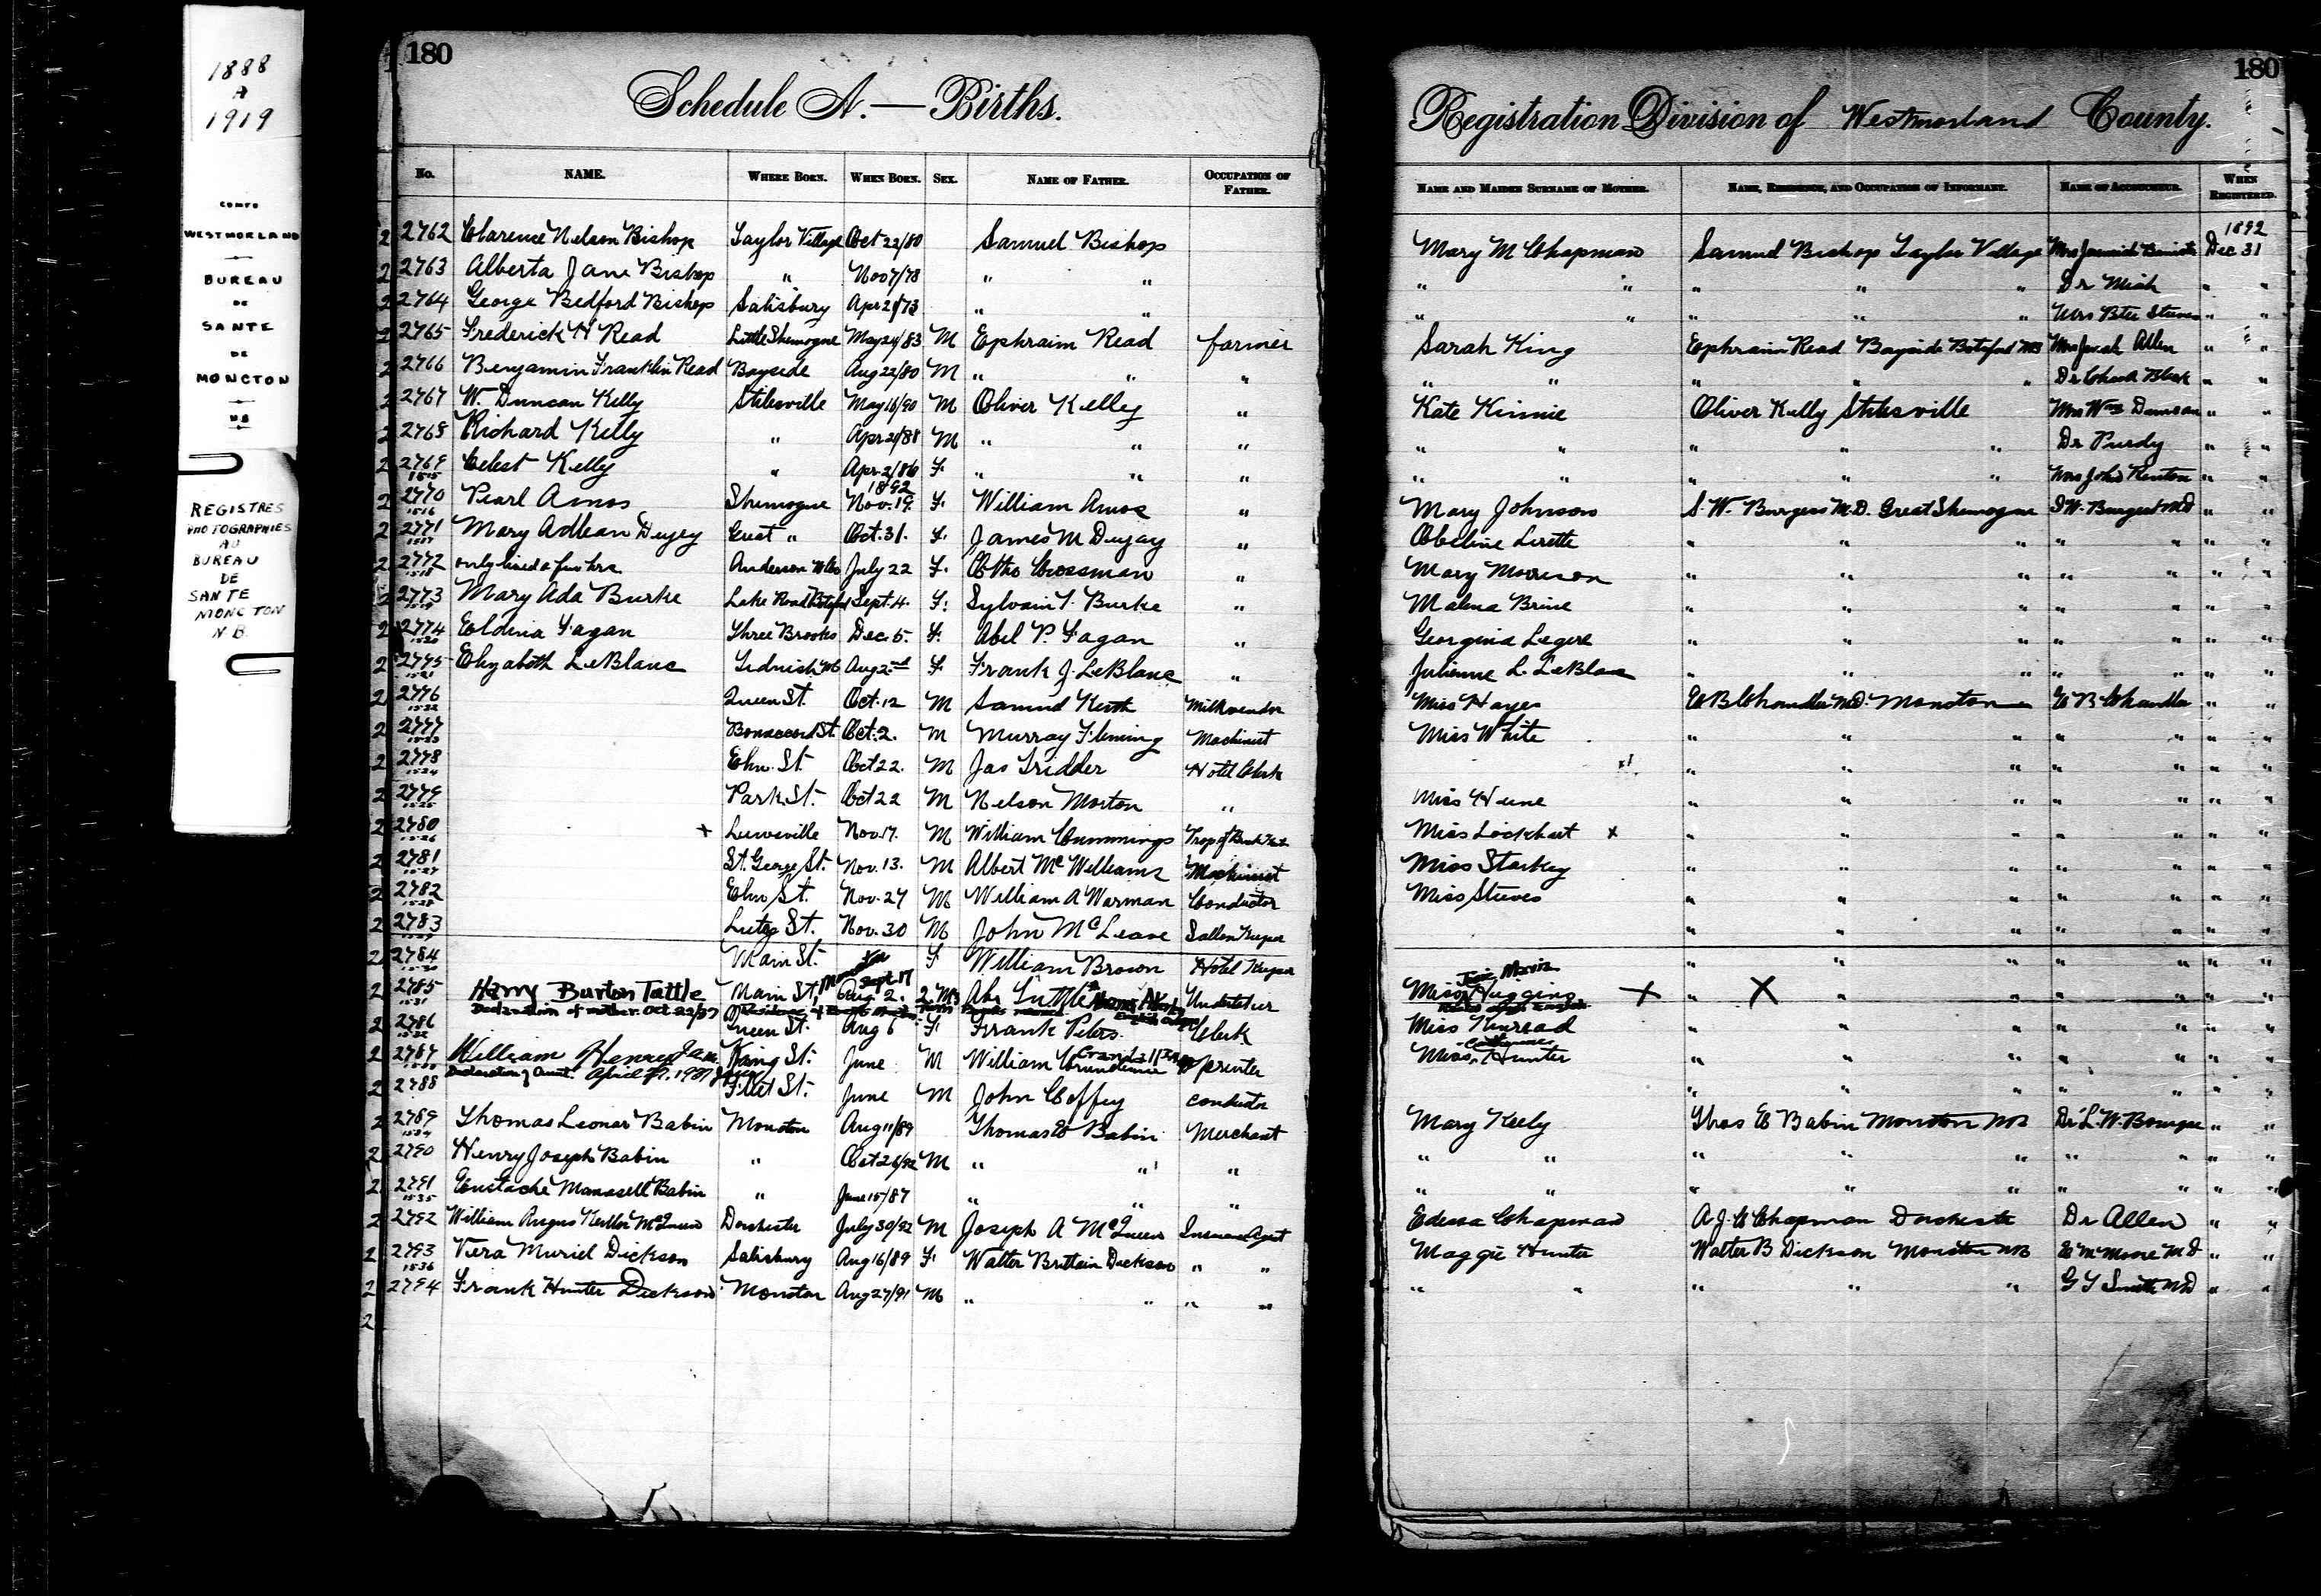 1888
A
1919
COMTE
WESTMORLAND
BUREAU
DE
SANTE
DE
MONCTON
NB
REGISTRES
PHOTOGRAPHIES
AU
BUREAU
DE
SANTE
MONCTON
N.B.
180
Schedule A. — Births.
No. NAME. WHERE BORN. WHEN BORN. SEX. NAME OF FATHER. OCCUPATION OF FATHER.
2762 Clarence Nelson Bishop Taylor Village Oct 22/80 Samuel Bishop
2763 Alberta Jane Bishop " Nov 7/78 " "
2764 George Bedford Bishop Salisbury Apr 21/73 " "
2765 Frederick H Read Little Shemogue May 24/83 M Ephraim Read farmer
2766 Benjamin Franklin Read Bayside Aug 22/80 M " " "
2767 W. Duncan Kelly Stilesville May 16/90 M Oliver Kelley "
2768 Richard Kelly " Apr 21/88 M " " "
2769 Celest Kelly " Apr 2/86 F. " " "
1515 1892
2770 Pearl Amos Shemogue Nov. 19. F. William Amos "
1516
2771 Mary Adlean Dugey Great " Oct. 31. F. James M Dugay "
1517
2772 only lived a few hrs Anderson July 22 F. Otho Crossman "
1518
2773 Mary Ada Burke Lake Road Botsford Sept. 4. F. Sylvain T. Burke "
1519
2774 Eldina Fagan Three Brooks Dec. 5. F. Abel P. Fagan "
1520
2775 Elizabeth LeBlanc Tidnish Aug 2nd F Frank J. LeBlanc "
1521
2776 Queen St. Oct. 12 M Samuel Keith Milkvendor
1522
2777 Bonaccord St. Oct. 2. M Murray Fleming Machinist
1523
2778 Elm St. Oct 22. M Jas Tridder Hotel Clerk
1524
2779 Park St. Oct 22 M Nelson Morton "
1525
2780 x Lewisville Nov. 17. M William Cummings
1526
2781 St. George St. Nov. 13. M Albert McWilliams Machinist
1527
2782 Elm St. Nov. 27 M William A Warman Conductor
1528
2783 Lutz St. Nov. 30 M John McLeave
1529
2784 Main St. F William Brown Hotel Keeper
1530
Moncton Sept 17
2785 Harry Burton Tuttle Main St, Aug. 2. 2 Ms Abr Tuttle Undertaker
1531 Declaration of mother Oct 22/37
2786 Queen St. Aug 6 F Frank Peters. Clerk
1532
2787 William Henry James King St. June M William Crandall printer
1533 Declaration of Aunt. April 1937
2788 Fleet St. June M John Coffey conductor
2789 Thomas Leonar Babin Moncton Aug 11/89 Thomas E Babin Merchant
1534
2790 Henry Joseph Babin " Oct 26/92 M " " "
2791 Eustache Manasell Babin " June 15/87 " " "
1535
2792 William Angus Keillor McQueen Dorchester July 30/92 M Joseph A McQueen Insurance Agent
2793 Vera Muriel Dickson Salisbury Aug 16/89 F. Walter Brittain Dickson " "
1536
2794 Frank Hunter Dickson Moncton Aug 27/91 M " " " "
180
Registration Division of Westmorland County.
NAME AND MAIDEN SURNAME OF MOTHER. NAME, RESIDENCE, AND OCCUPATION OF INFORMANT. NAME OF ACCOUCHEUR. WHEN REGISTERED.
1892
Mary M Chapman Samuel Bishop Taylor Village Dec 31
" " " " " Dr " "
" " " " " Mrs Steeves " "
Sarah King Ephraim Read Bayside Botsford NB Mrs Allen " "
" " " " " " "
Kate Kinnie Oliver Kelly Stilesville Mrs Wm Duncan " "
" " " " " Dr Purdy " "
" " " " " Mrs John Kenton " "
Mary Johnson S. W. Burgess M.D. Great Shemogue S W. Burgess MD " "
Obeline Lirette " " " " " " "
Mary Morrison " " " " " " "
Malena Brine " " " " " " "
Georgina Legere " " " " " " "
Julienne L. LeBlanc " " " " " " "
Miss Hayes E B Chandler M.D. Moncton E B Chandler " "
Miss White " " " " " " "
" " " " " " "
Miss Hune " " " " " " "
Miss Lockhart x " " " " " " "
Miss Starkey " " " " " " "
Miss Steeves " " " " " " "
" " " " " " "
" " " " " " "
Miss Higgins x " X " " " " " "
Miss Kinread " " " " " " "
Catherine
Miss Hunter " " " " " " "
" " " " " " "
Mary Keely Thos E Babin Moncton NB Dr L. N. Bourque " "
" " " " " " " " "
" " " " " " " " "
Edessa Chapman A. J. C Chapman Dorchester Dr Allen " "
Maggie Hunter Walter B Dickson Moncton NB E M Moore MD " "
" " " " " G T Smith MD " "